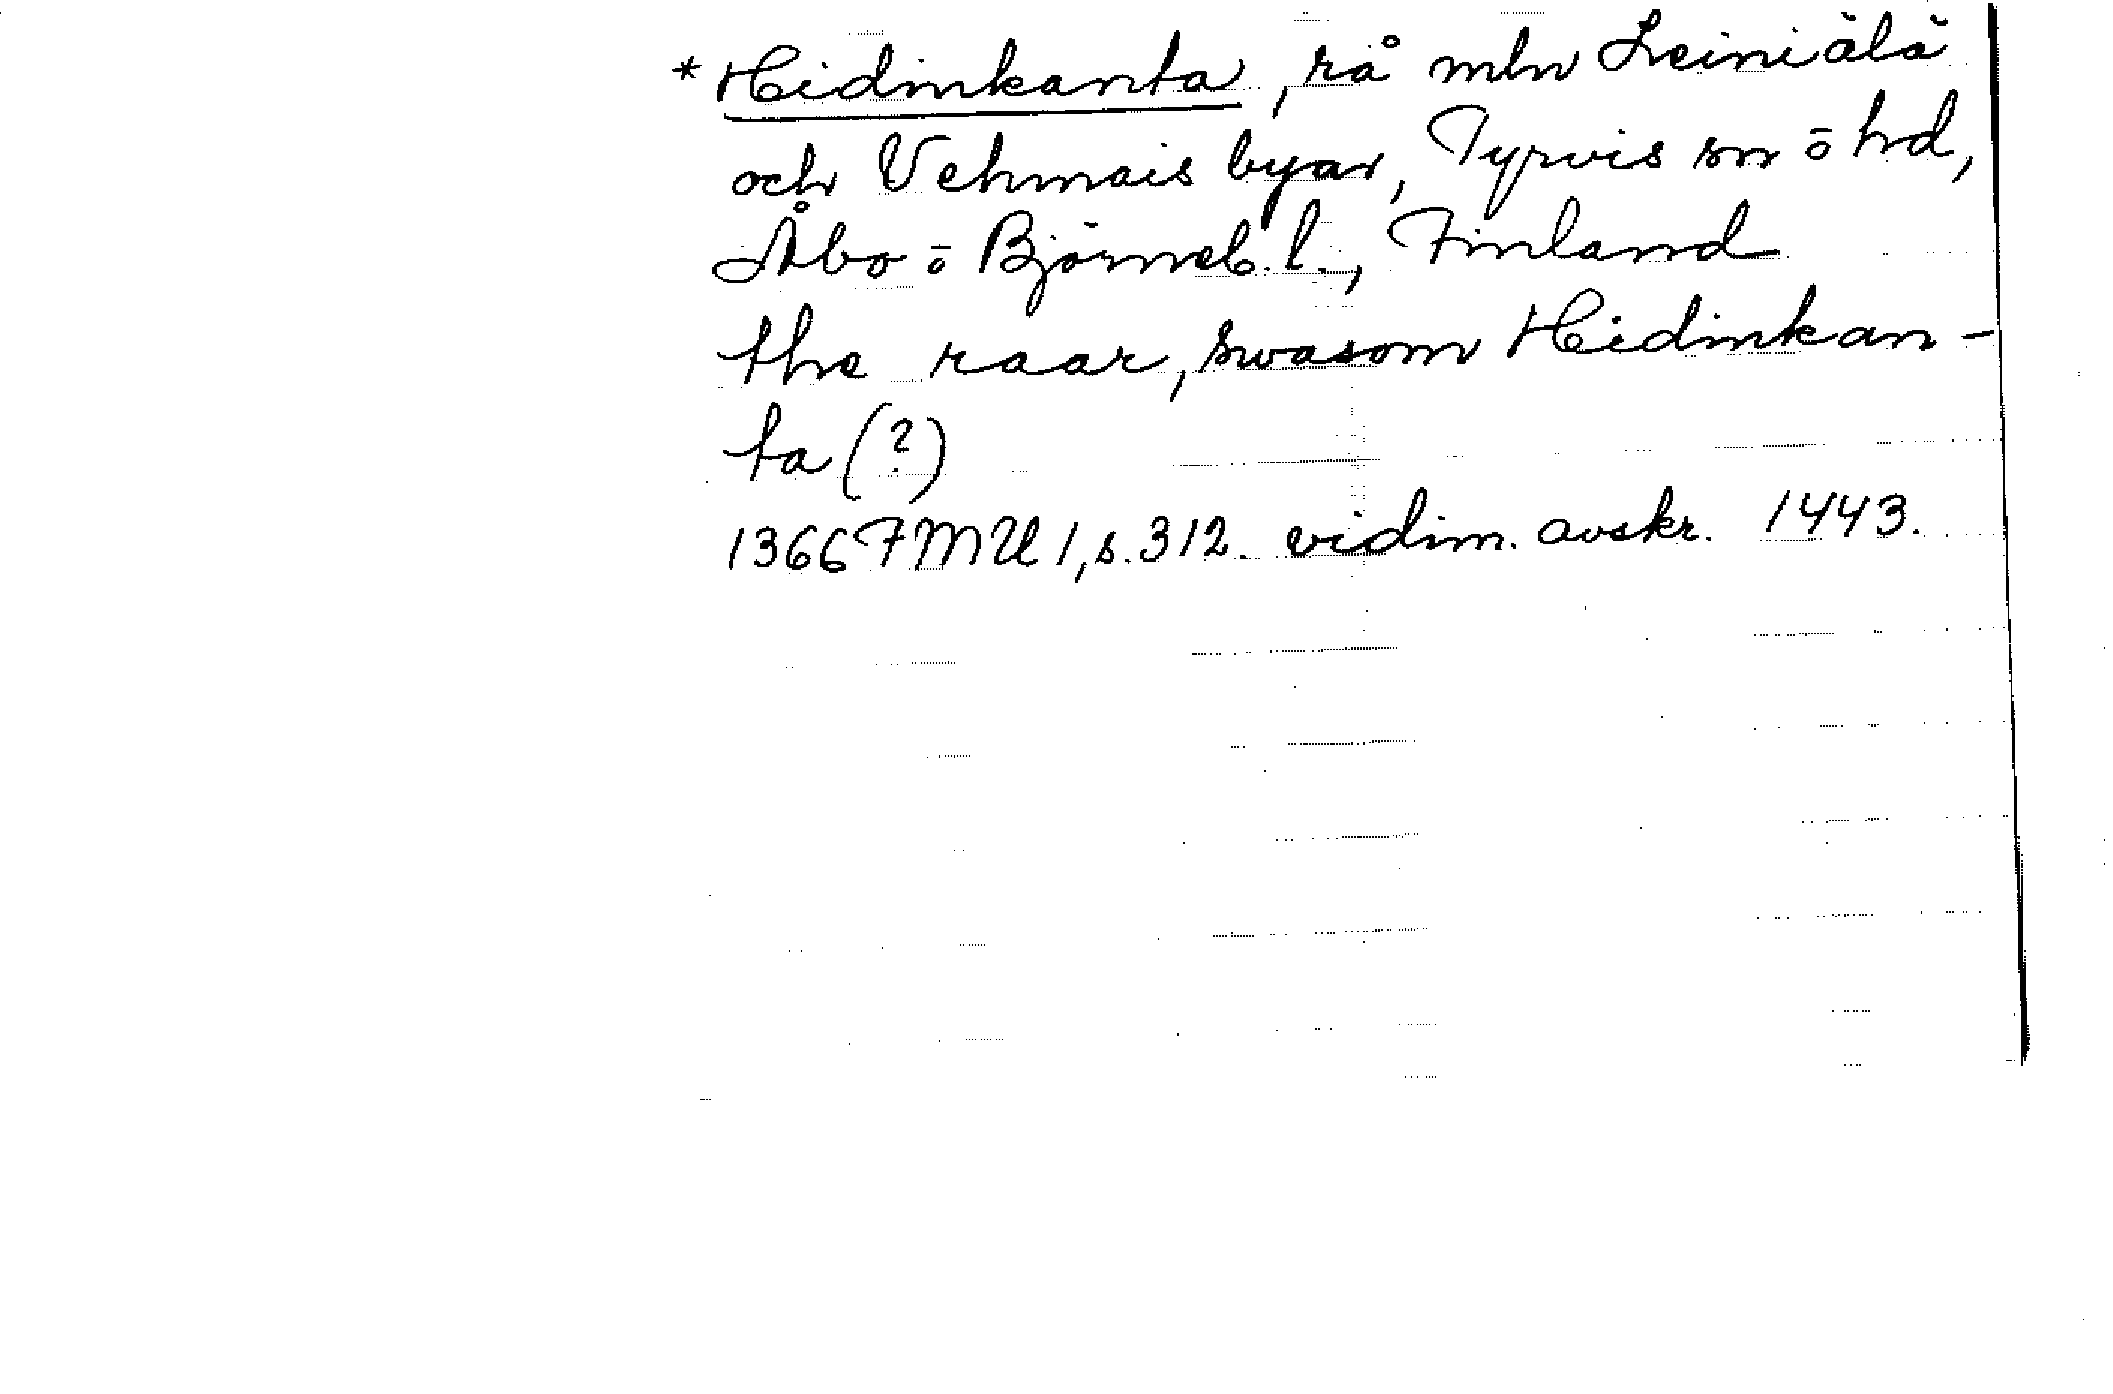 * Hidinkanta, rå mln Leiniälä
och Vehmais byar, Tyrvis sn ō hd,
Åbo ō Björneb. l., Finland
the raar, swasom Hidinkan-
ta (?)
1366 FMU 1, s. 312. vidim. avskr. 1443.